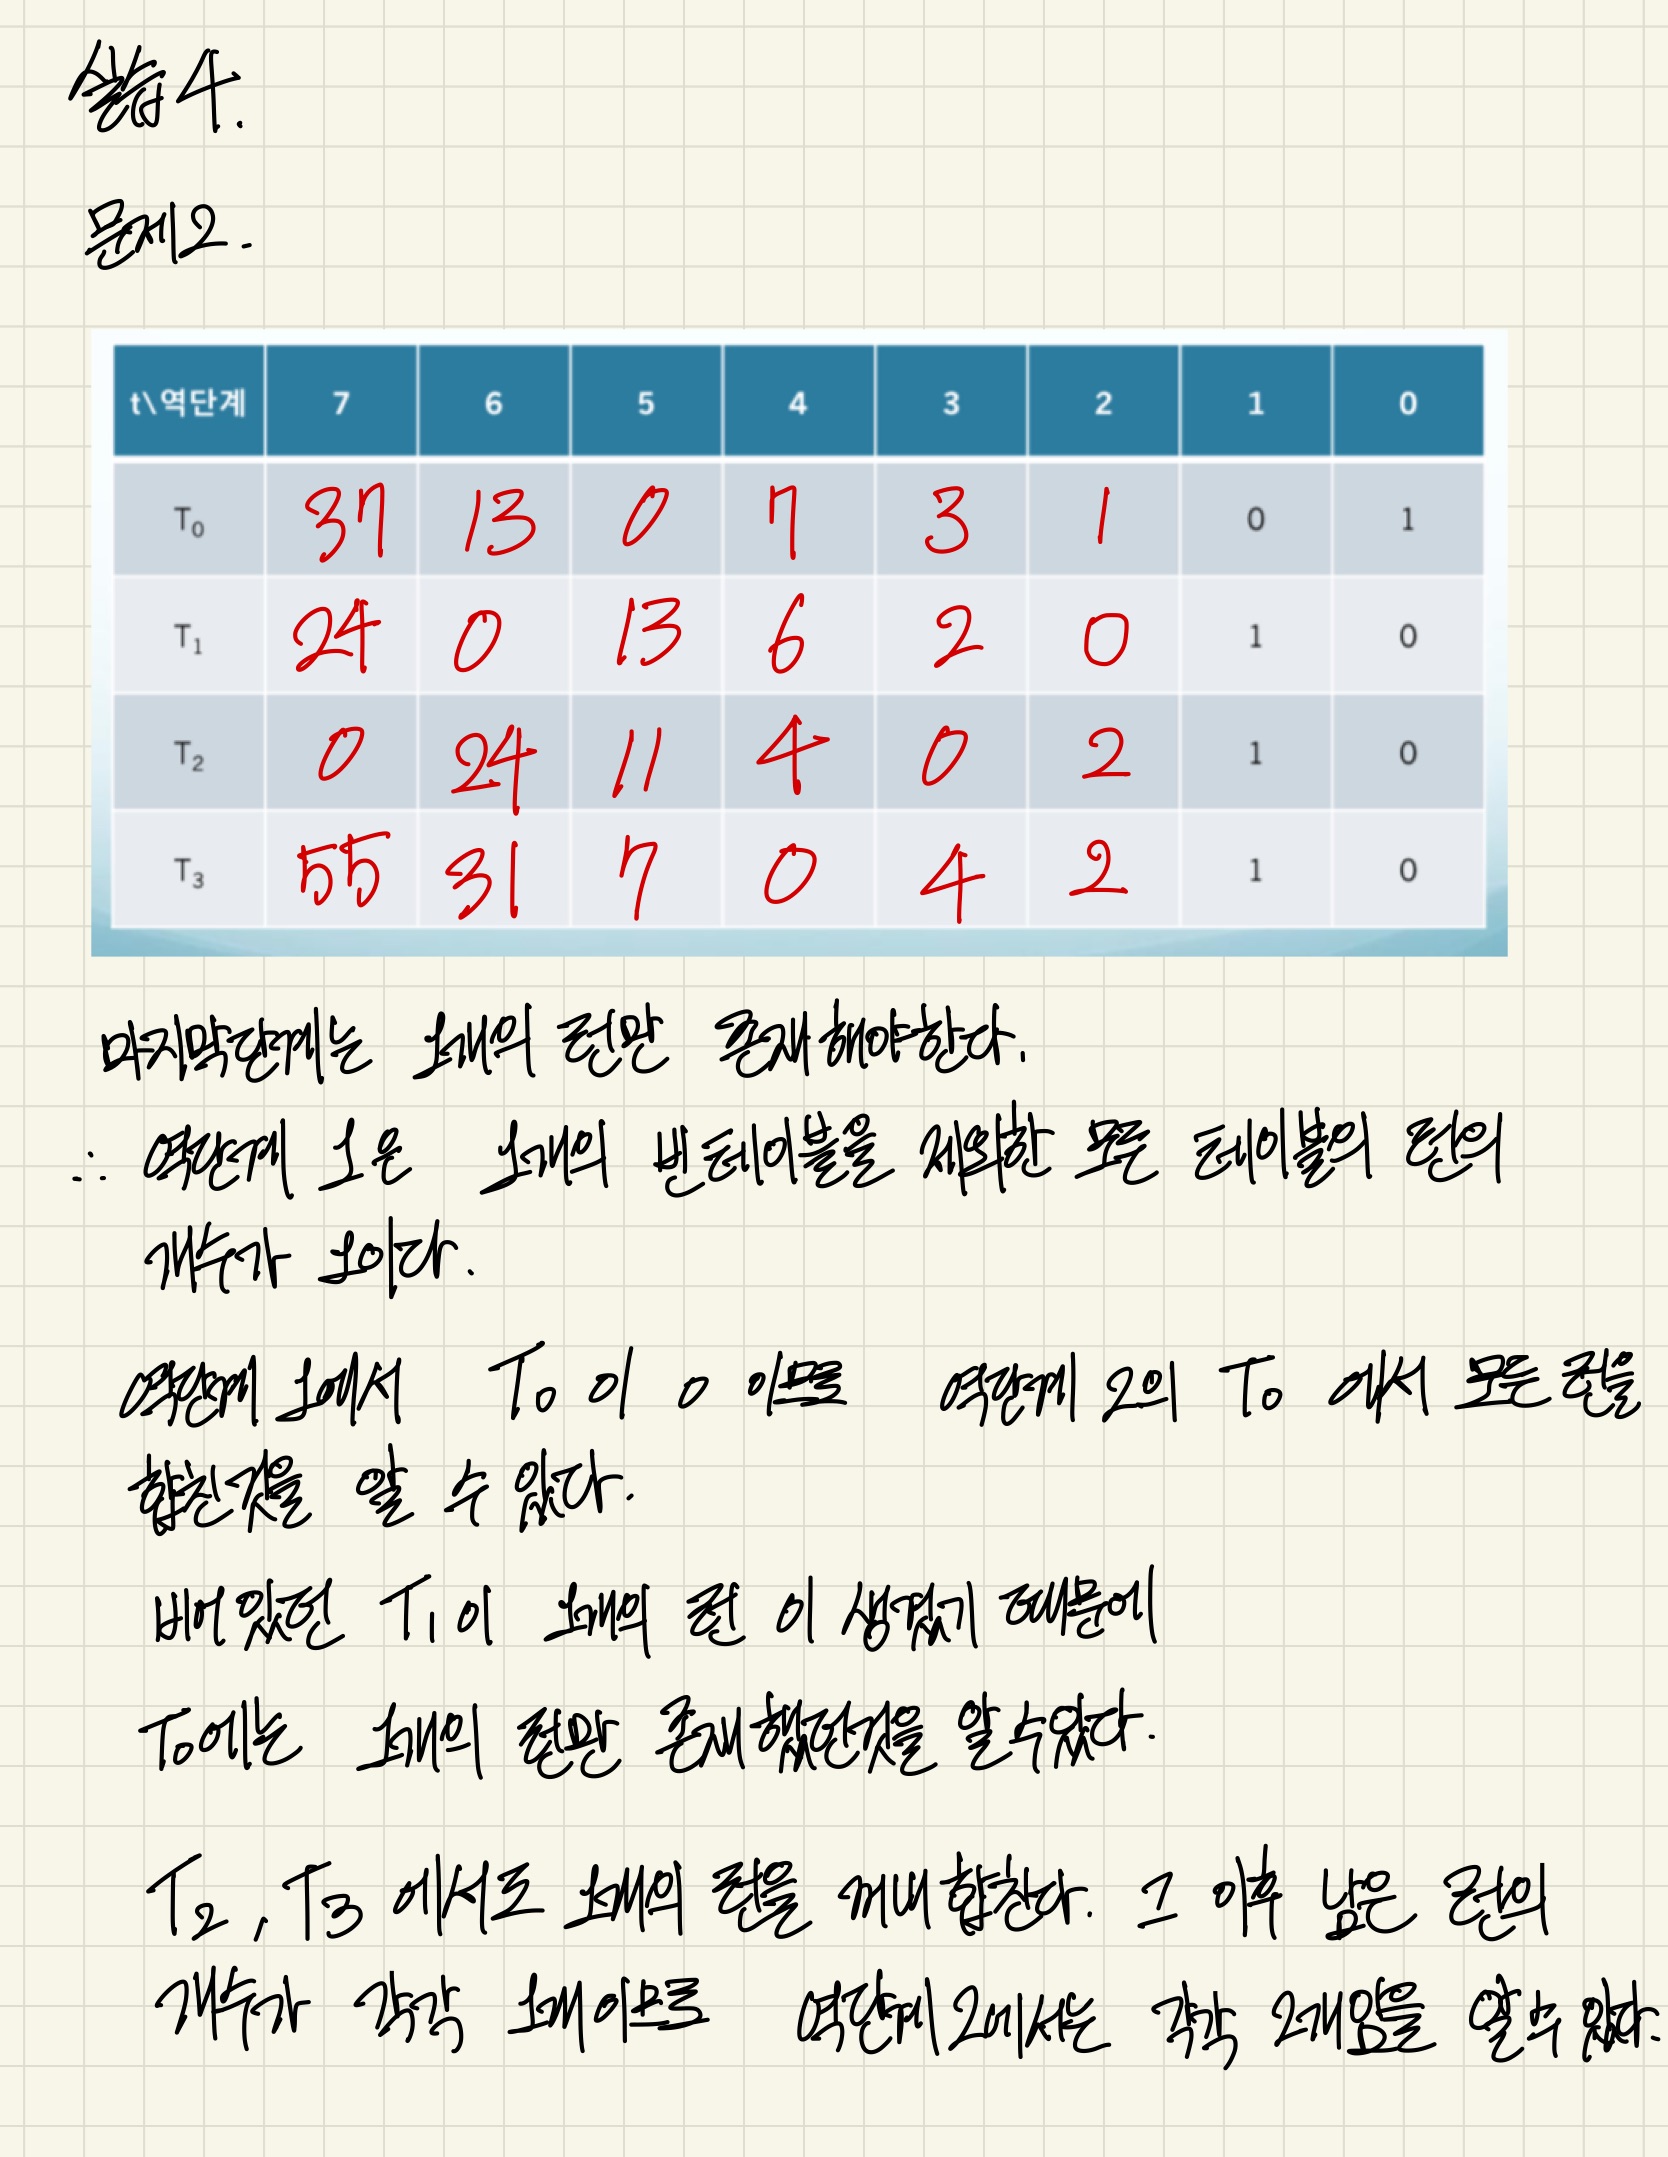 실습 4.
문제 2.
t\역단계 7 6 5 4 3 2 1 0
T0 37 13 0 7 3 1 0 1
T1 24 0 13 6 2 0 1 0
T2 0 24 11 4 0 2 1 0
T3 55 31 7 0 4 2 1 0
마지막단계는 1개의 런만 존재해야한다.
∴ 역단계 1은 1개의 빈테이블을 제외한 모든 테이블의 런의
개수가 1이다.
역단계 1에서 T0이 0이므로 역단계 2의 T0에서 모든 런을
합친것을 알 수 있다.
비어있던 T1이 1개의 런이 생겼기 때문에
T0에는 1개의 런만 존재했단것을 알수있다.
T2, T3에서도 1개의 런을 꺼내 합친다. 그 이후 남은 런의
개수가 각각 1개이므로 역단계 2에서는 각각 2개임을 알 수 있다.